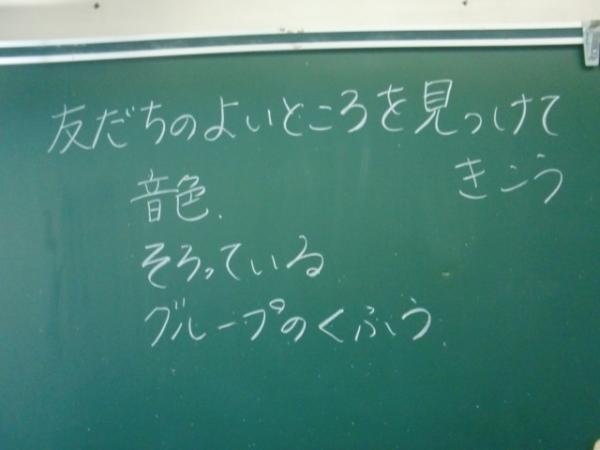 友だちのよいところを見つけて
きこう
音色
そろっている
グループのくふう